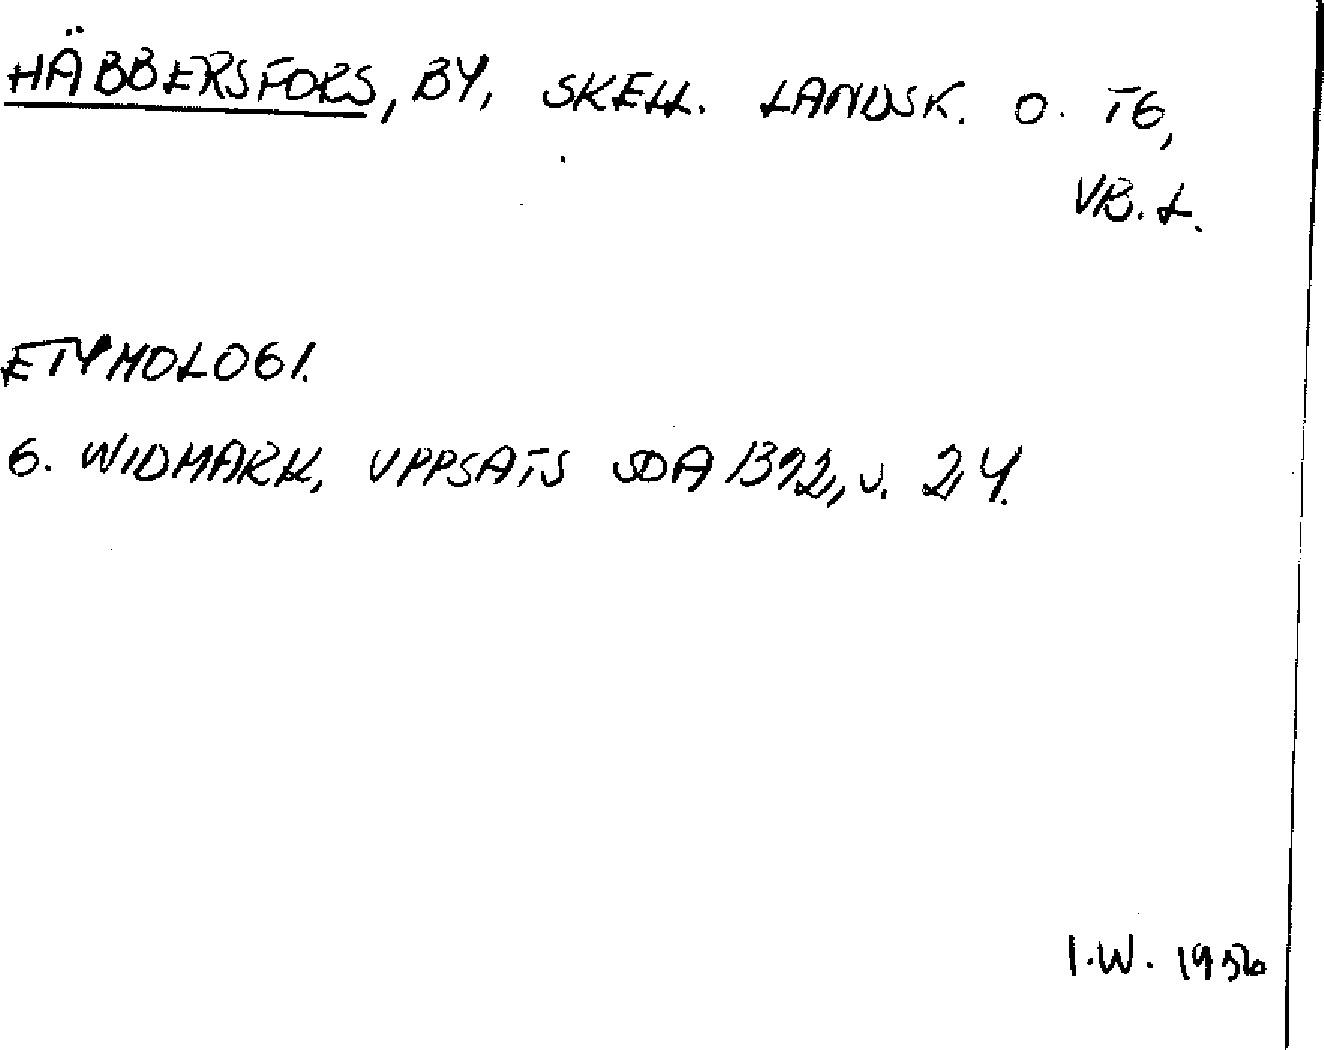 HÄBBERSFORS, BY, SKELL. LANDSK. O. TG,
VB. L.
ETYMOLOGI.
G. WIDMARK, UPPSATS SOA 1392, S. 24.
I.W. 1956